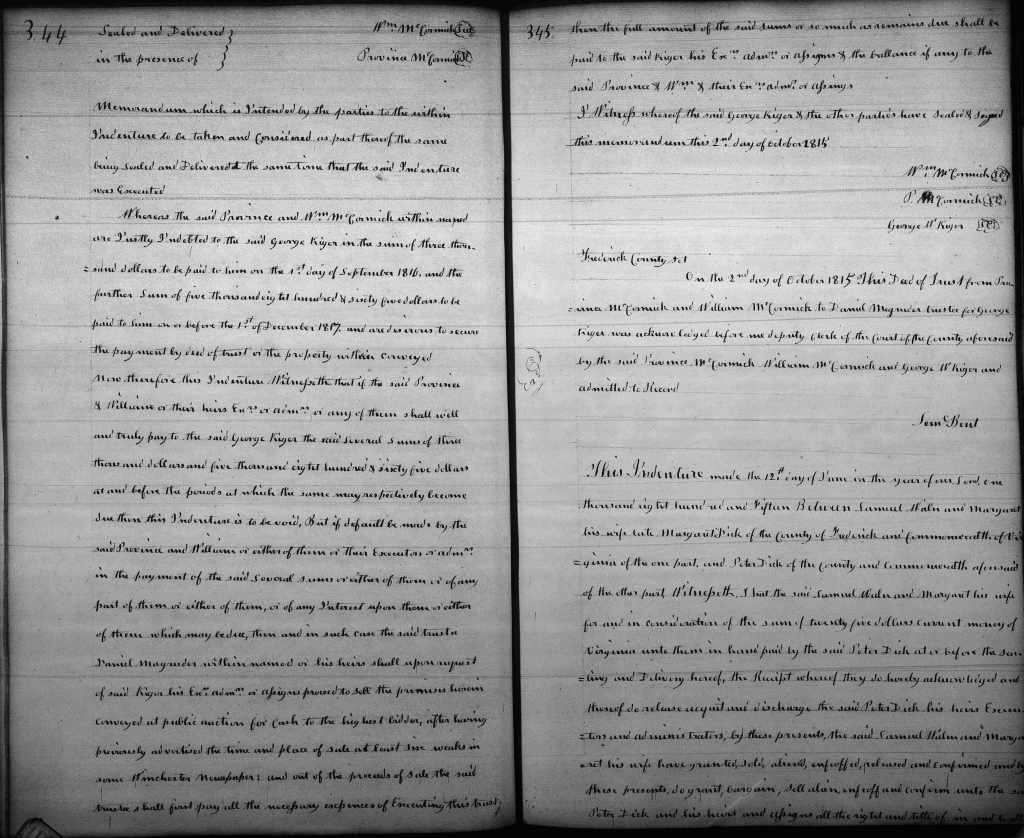 344
Sealed and Delivered
in the presence of
Wm McCormick Seal
Province McCormick
Memorandum which is Intended by the parties to the within
Indenture to be taken and Considered as part thereof the same
being sealed and Delivered at the same time that the said Indenture
was Executed
Whereas the said Province and Wm McCormick within named
are Justly Indebted to the said George Kiger in the sum of three thou-
=sand dollars to be paid to him on the 1st day of September 1816. and the
further Sum of five thousand eight hundred & sixty five dollars to be
paid to him on or before the 1st of December 1817. and are desirous to secure
the payment by deed of trust on the property within conveyed
Now therefore this Indenture Witnesseth that if the said Province
& William or their heirs Exrs or admrs or any of them shall well
and truly pay to the said George Kiger the said Several Sums of three
thousand dollars and five thousand eight hundred & sixty five dollars
at and before the periods at which the same may respectively become
due then this Indenture is to be void, But if default be made by the
said Province and William or either of them or their Executors or admrs
in the payment of the said Several Sums or either of them or of any
part of them or either of them, or of any Interest upon them or either
of them which may be due, then and in such case the said trustee
Daniel Magruder within named or his heirs shall upon request
of said Kiger his Exrs admrs or assigns proceed to sell the premises herein
conveyed at public auction for Cash to the highest bidder, after having
previously advertised the time and place of sale at least six weeks in
some Winchester Newspaper; and out of the proceeds of sale the said
trustee shall first pay all the necessary expences of Executing this trust,
345
then the full amount of the said sums or so much as remains due shall be
paid to the said Kiger his Exrs admrs or assigns & the ballance if any to the
said Province & Wm & their Exrs admrs or assigns
I Witness whereof the said George Kiger & the other parties have Sealed & Signed
this memorandum this 2nd day of October 1815
Wm McCormick
P. McCormick
George W Kiger
Frederick County sct
On the 2nd day of October 1815 This Deed of Trust from Pro-
=vince McCormick and William McCormick to Daniel Magruder trustee for George
Kiger was acknowledged before me deputy Clerk of the Court of the County aforesaid
by the said Province McCormick William McCormick and George W Kiger and
admitted to Record
Lem Bent
This Indenture made the 12th day of June in the year of our Lord, one
thousand eight hundred and Fifteen Between Samuel Waln and Margaret
his wife late Margaret Dick of the County of Frederick and Commonwealth of Vir
=ginia of the one part, and Peter Dick of the County and Commonwealth aforesaid
of the other part Witnesseth, That the said Samuel Waln and Margaret his wife
for and in consideration of the sum of twenty five dollars current money of
Virginia unto them in hand paid by the said Peter Dick at or before the sea-
=ling and Delivery hereof, the Receipt whereof they do hereby acknowledge and
thereof do release acquit and discharge the said Peter Dick his heirs Execu-
=tors and administrators, by these presents, the said Samuel Waln and Marga-
=ret his wife have granted, sold, aliened, enfeoffed, released and confirmed and by
these presents, do grant, bargain, sell alien, enfeoff and confirm unto the said
Peter Dick and his heirs and assigns all the right and title of in and to all